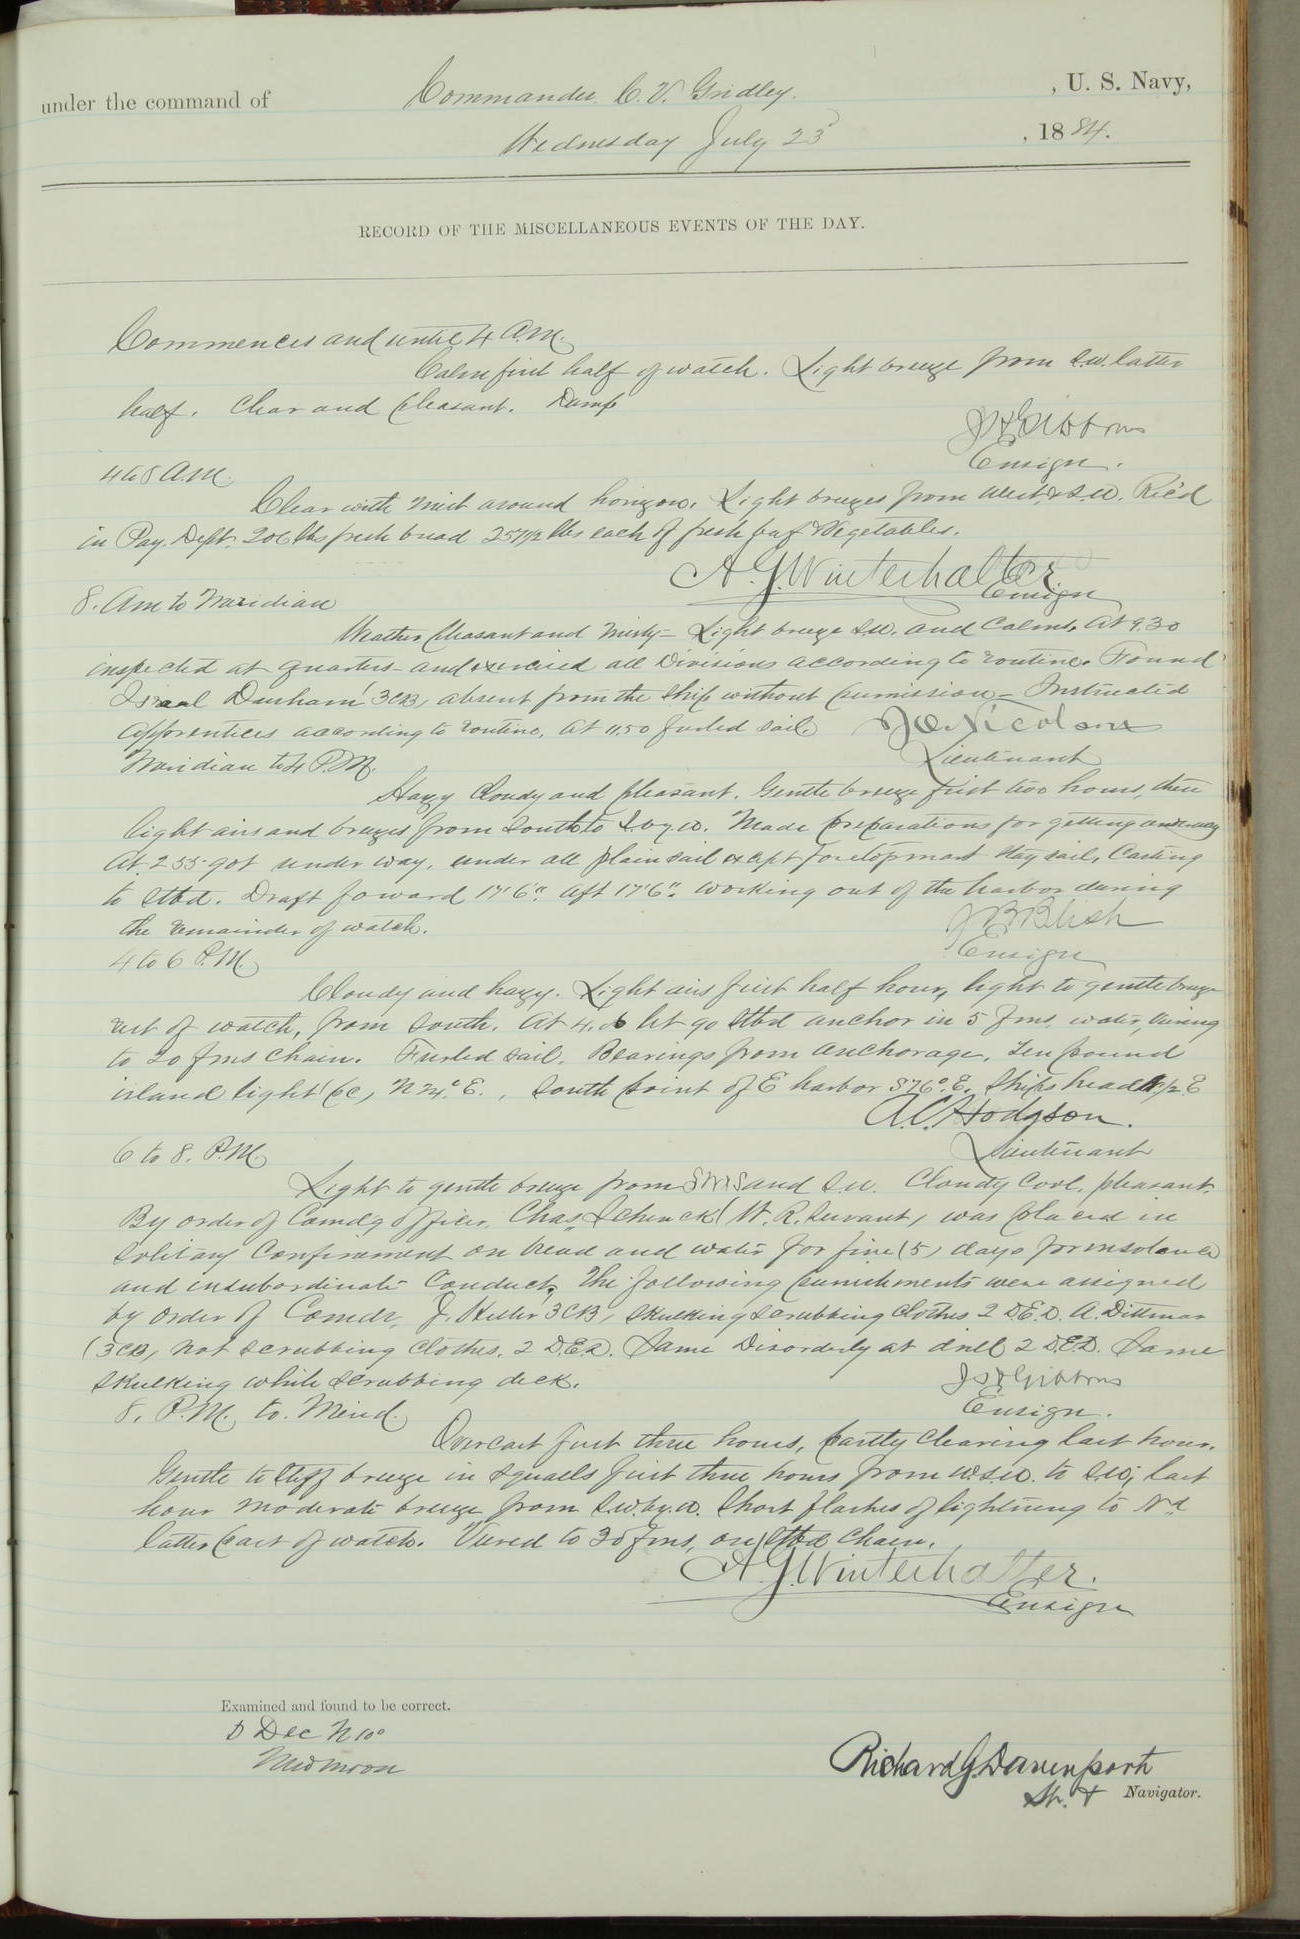 under the command of Commander C. V. Gridley. , U. S. Navy,
Wednesday July 23 , 1884.
RECORD OF THE MISCELLANEOUS EVENTS OF THE DAY.
Commences and until 4 A.M.
Calm first half of watch. Light breeze from S.W. latter
half. Clear and pleasant. Damp
J H Gibbons
Ensign.
4 to 8 A.M.
Clear with mist around horizon. Light breezes from West & S.W. Rec'd
in Pay. Dept. 206 lbs fresh bread 257 1/2 lbs each of fresh beef & Vegetables.
A. G. Winterhalter.
Ensign
8. Am to Meridian
Weather pleasant and misty— Light breeze S.W. and Calms. At 9.30
inspected at quarters— and exercised all Divisions according to routine. Found
Israel Dunham (3CB) absent from the ship without permission— Instructed
apprentices according to routine. At 11.50 furled sail.
Lieutenant
Meridian to 4 P.M.
Hazy Cloudy and pleasant. Gentle breeze first two hours, then
light airs and breezes from South to S. by W. Made preparations for getting underway
At 2 55 got under way, under all plain sail except foretopmast staysail, Casting
to stbd. Draft foward 17' 6". Aft 17' 6". Working out of the harbor during
the remainder of watch.
J B Blish
Ensign
4 to 6 P.M.
Cloudy and hazy. Light airs first half hour, light to gentle breeze
rest of watch, from South. At 4. let go stbd anchor in 5 fms water, veering
to 20 fms chain. Furled sail. Bearings from anchorage, Ten pound
island light (pc) N 24° E. , South point of E harbor S 76° E. Ships head E
A. C. Hodgson.
Lieutenant
6 to 8. P.M.
Light to gentle breeze from SWS and S.W. Cloudy Cool, pleasant.
By order of Comd'g Officer, Chas Schenck (W. R. Servant) was placed in
solitary Confinement on bread and water for five (5) days for insolence
and insubordinate Conduct, The following punishments were assigned
by order of Comdr, J. Heller 3CB, skulking scrubbing Clothes 2 D.E.D. A. Dittman
(3CB) not scrubbing Clothes. 2 D.E.D. Same Disorderly at drill 2 D.E.D. Same
skulking while scrubbing deck.
J H Gibbons
Ensign.
8. P.M. to Mid.
Overcast first three hours, partly clearing last hour.
Gentle to stiff breeze in squalls first three hours from W.S.W. to S.W; last
hour moderate breeze from S.W. by. W. Short flashes of lightning to N'd
latter part of watch. Veered to 30 fms, on stbd Chain.
A. G. Winterhalter.
Ensign
Examined and found to be correct.
D Dec N 10°
Richard G. Davenport
Lt. & Navigator.